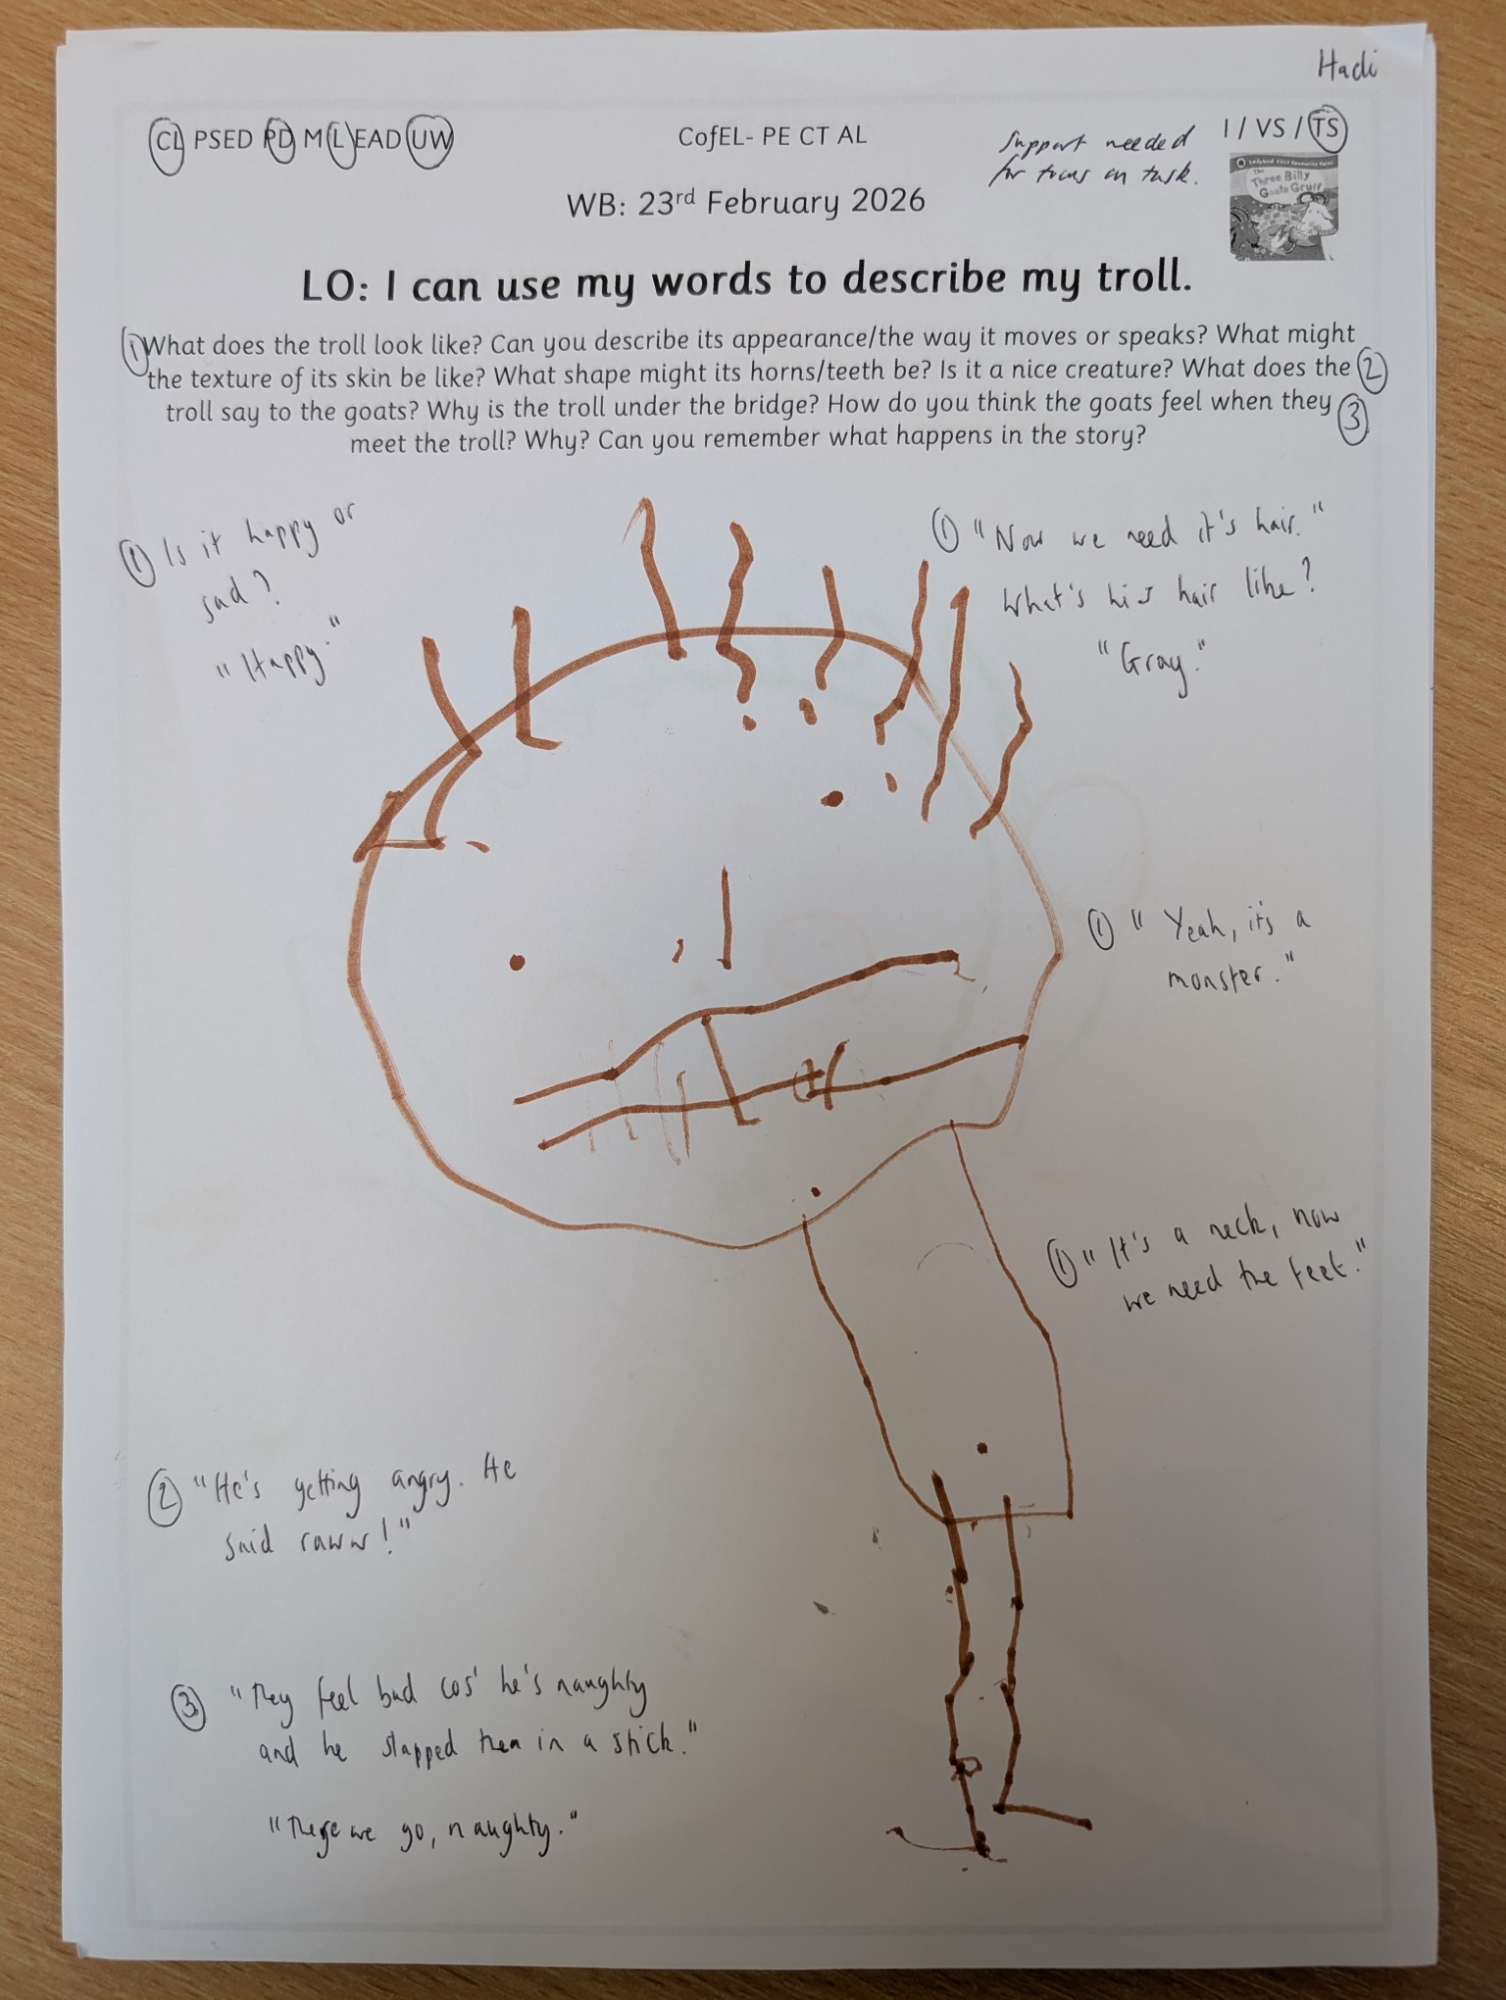 Hadi
CL PSED PD M L EAD UW
CofEL- PE CT AL
Support needed
for focus on task.
I / VS / TS
WB: 23rd February 2026
The
Three Billy
Goats Gruff
LO: I can use my words to describe my troll.
① What does the troll look like? Can you describe its appearance/the way it moves or speaks? What might
the texture of its skin be like? What shape might its horns/teeth be? Is it a nice creature? What does the ②
troll say to the goats? Why is the troll under the bridge? How do you think the goats feel when they ③
meet the troll? Why? Can you remember what happens in the story?
① Is it happy or
sad?
"Happy."
① "Now we need it's hair."
What's his hair like?
"Gray."
① "Yeah, it's a
monster."
① "It's a neck, now
we need the feet."
② "He's getting angry. He
said raww!"
③ "They feel bad cos' he's naughty
and he slapped them in a stick."
"There we go, naughty."